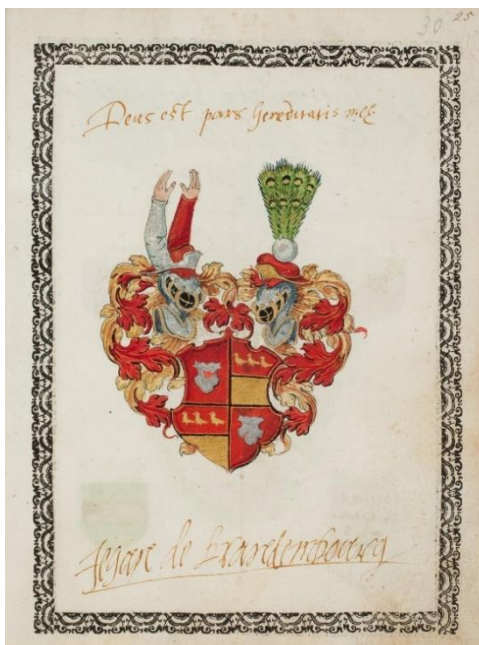 30 25
Deus est pars hereditatis meę
Jehan de Brandembourg